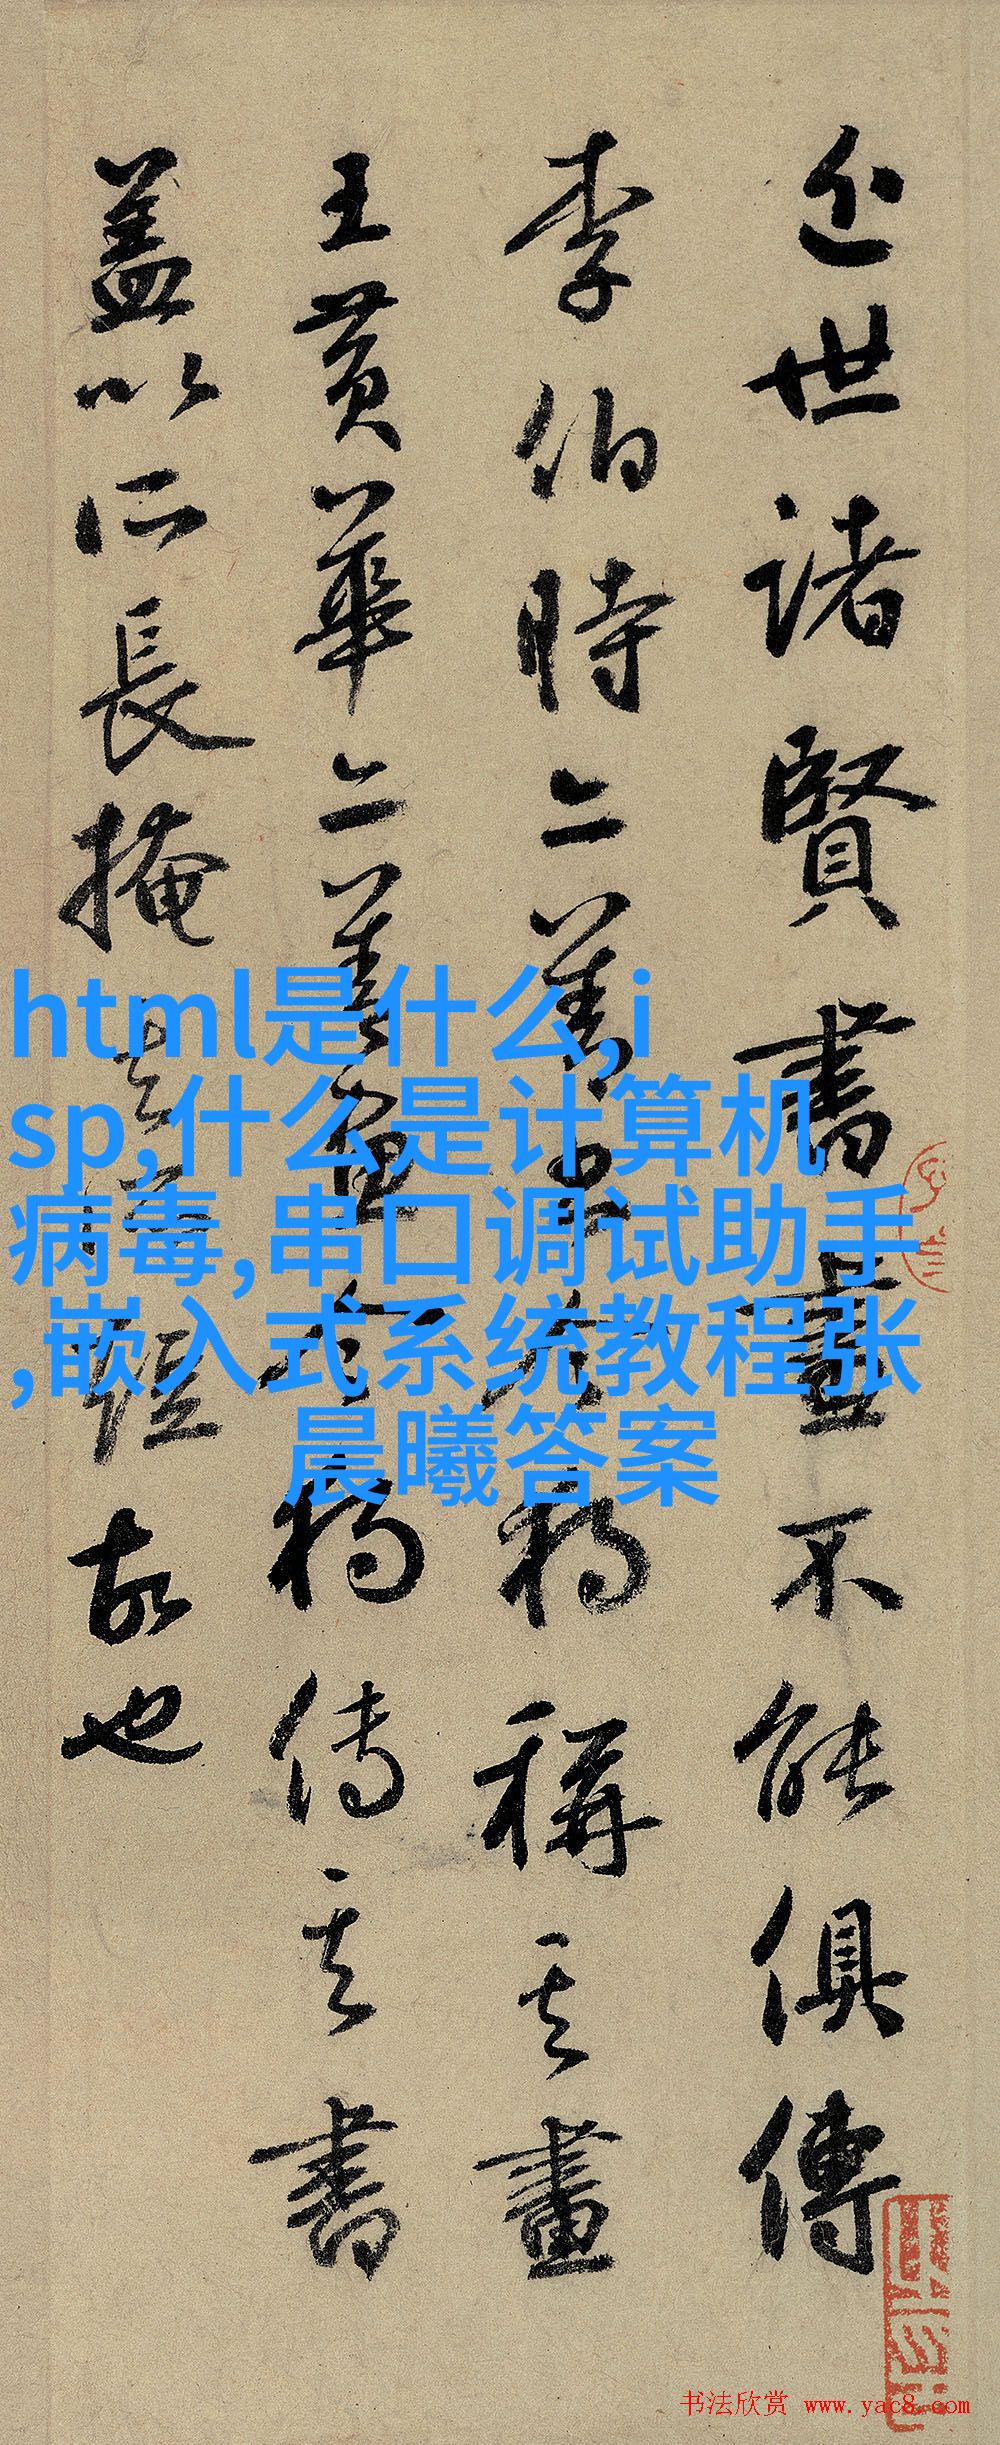 近世諸賢書畫不能俱傳
李伯時二善畫今獨稱其畫
王黄華二善畫今獨傳其書
蓋以所長掩其所短故也
html是什么,i
sp,什么是计算机
病毒,串口调试助手
,嵌入式系统教程张
晨曦答案
书法欣赏 www.yac8.com